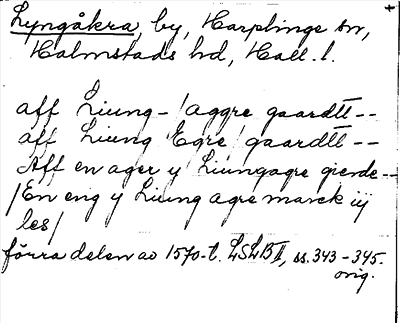 Lyngåkra, by, Harplinge sn,
Halmstads hd, Hall. l.
aff Liung-/aggre gaardtt--
aff Liung Egre/gaardtt--
Aff en ager y Liungagre gierde--
/En eng y Liung agre marck iij
les/
förra delen av 1570-t. LSLB II, ss. 343-345.
orig.